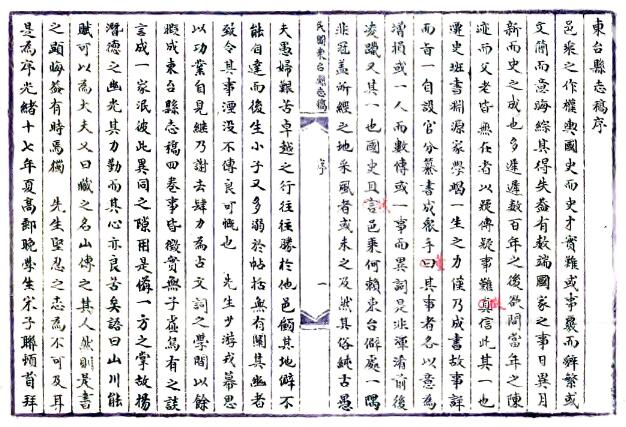 東台縣志稿序
邑乘之作權輿國史而史才實難或事襲而辭繁或
文簡而意晦綜其得失葢有數端國家之事日異月
新而史之成也多遲遲數百年之後欲問當年之陳
迹而父老皆無在者以疑傳疑事難真信此其一也
遷史班書淵源家學竭一生之力僅乃成書故事詳
而言一自設官分纂書成衆手曰其事者各以意為
增損或一人而數傳或一事而異詞是非渾淆前後
淩躐又其一也國史且言邑乘何賴東台僻處一隅
非冠葢所經之地采風者或未之及然其俗純古愚
民國東台縣志稿
序
一
夫愚婦艱苦卓越之行往往勝於他邑顧其地僻不
能自達而後生小子又多溺於帖括無有闡其幽者
致令其事湮没不傳良可慨也 先生少游戎幕思
以功業自見繼乃謝去肆力為古文詞之學間以餘
暇成東台縣志稿四卷事皆徵實無子虛烏有之談
言成一家泯彼此異同之隙用是備一方之掌故揚
潛德之幽光其力勤而其心亦良苦矣語曰山川能
賦可以為大夫又曰藏之名山傳之其人然則是書
之顯晦葢有時焉獨 先生堅忍之志為不可及耳
是為序光緒十七年夏高郵晚學生宋子聯頓首拜